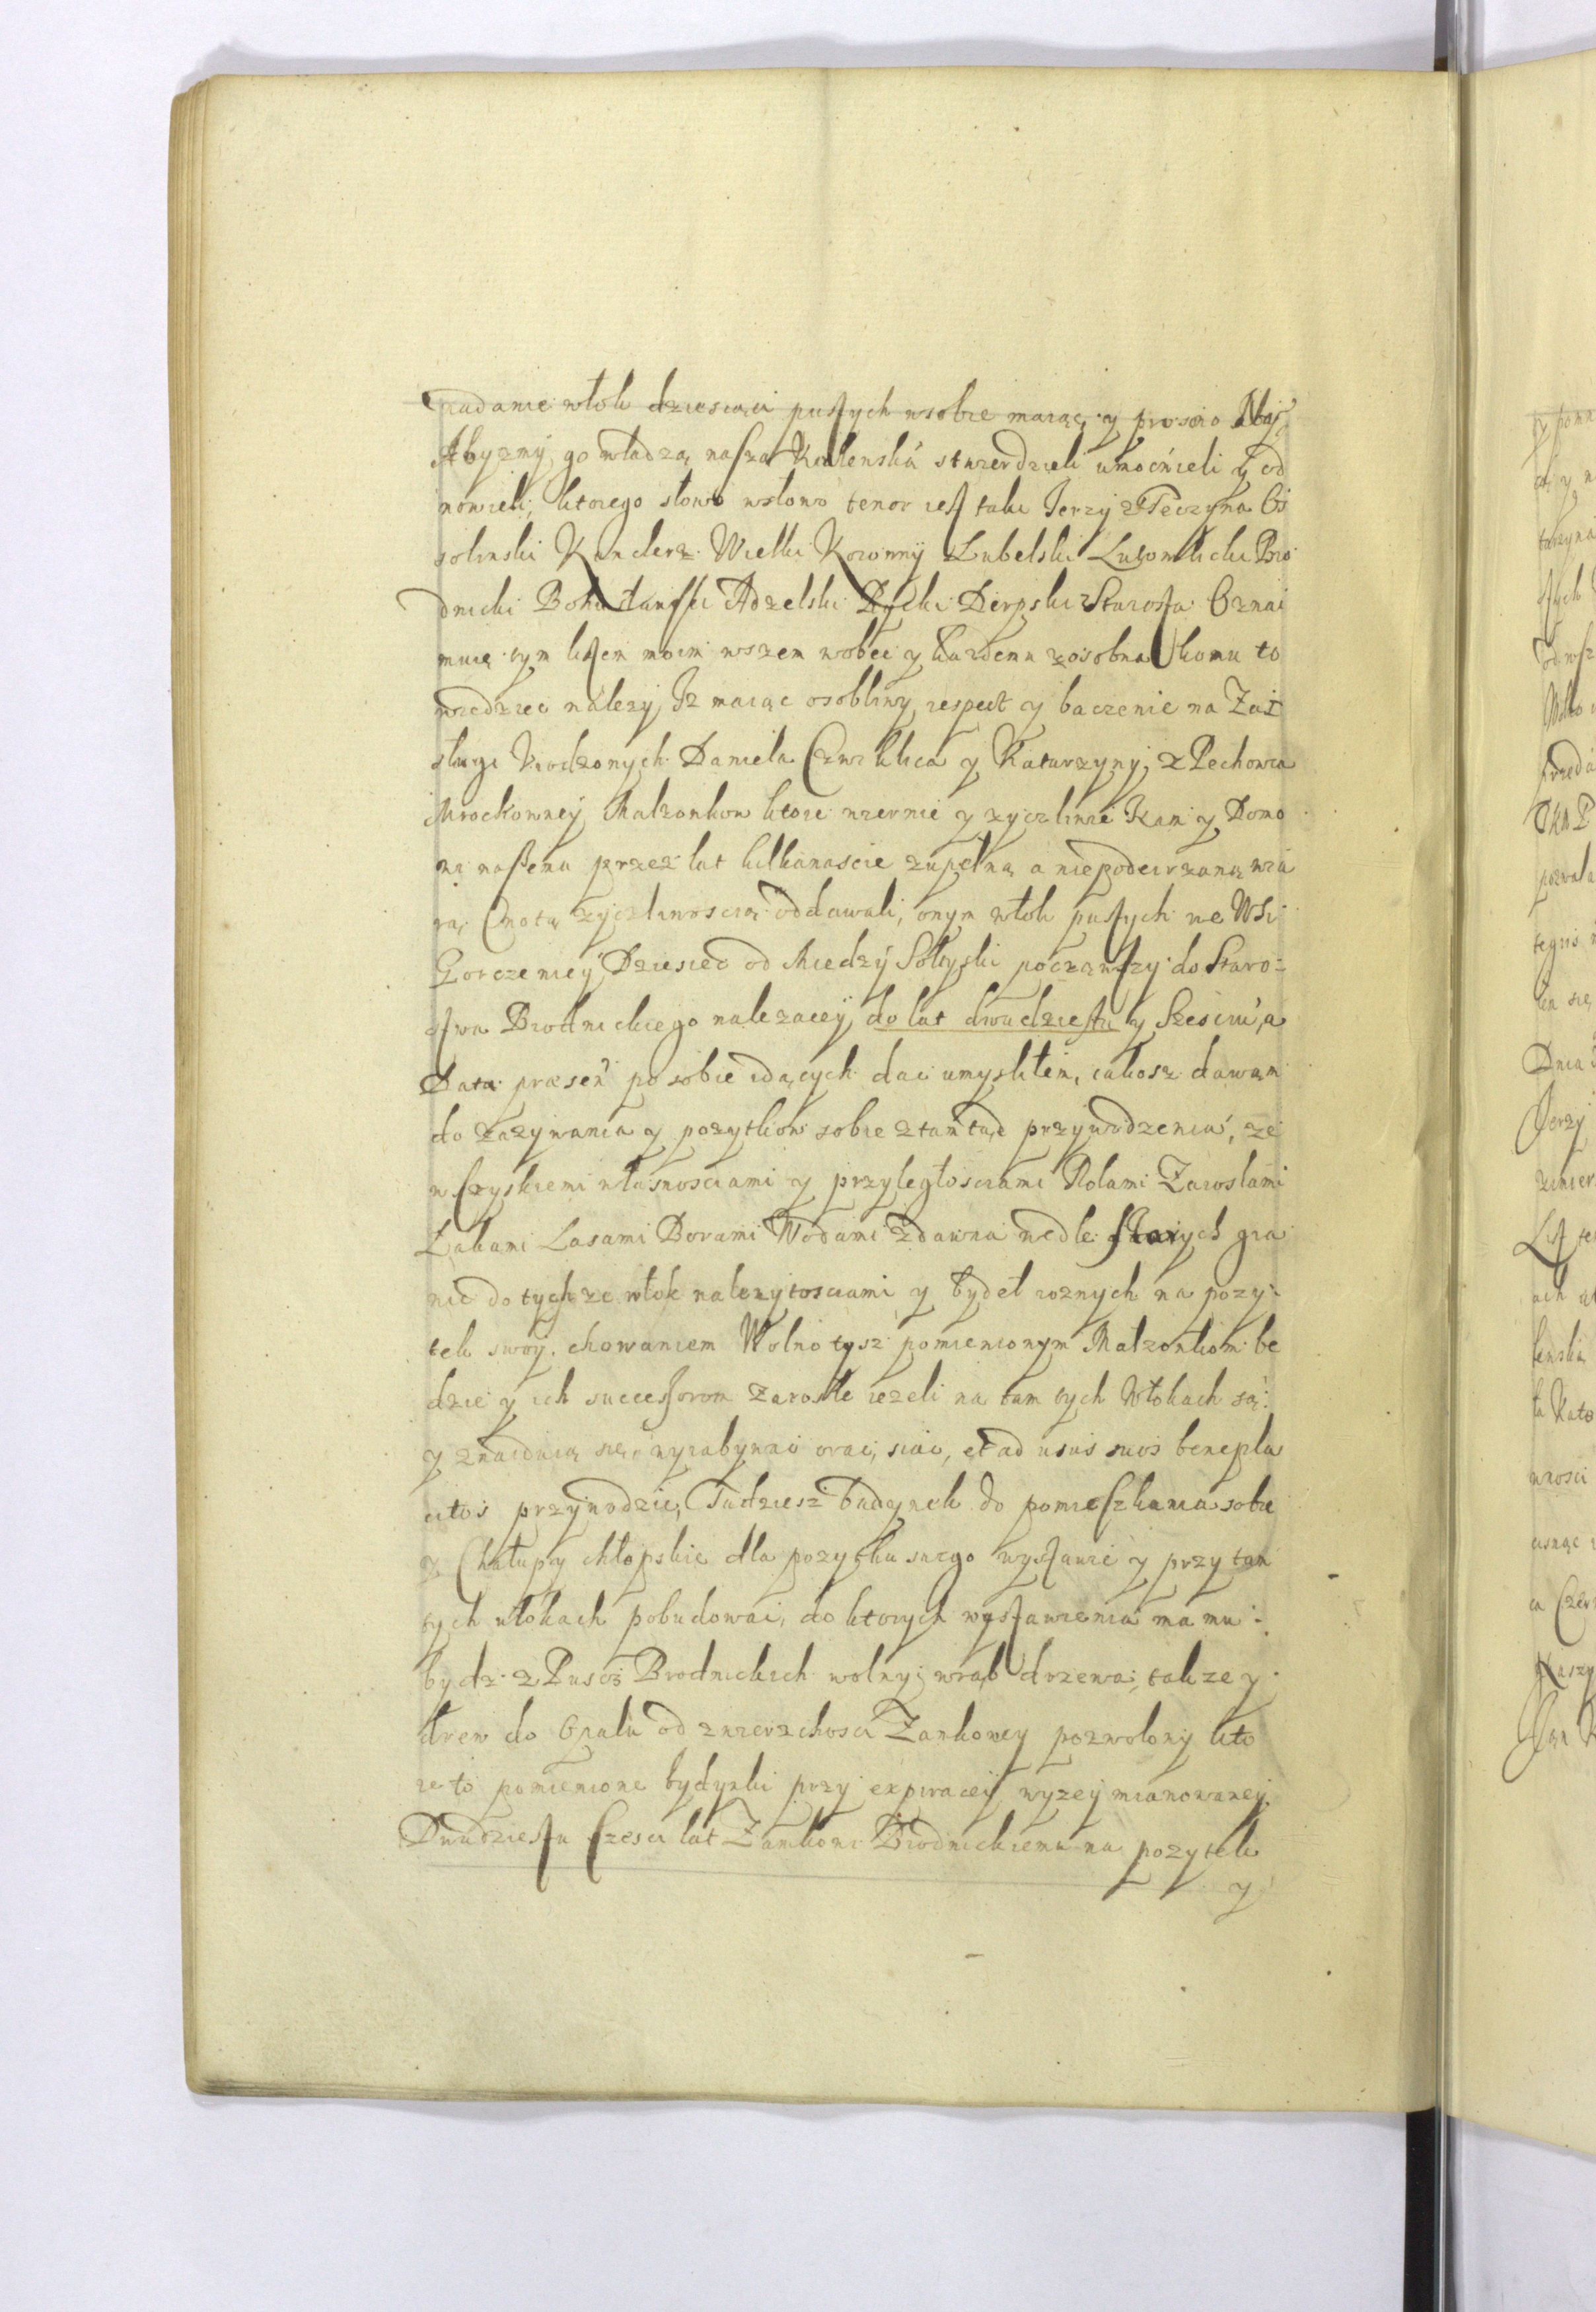 nadanie włok dziesiąci pustych wsobie maiąc, y proszo Nas
Abyszmy go władzą naszą Krolenską stwierdzieli umocnieli y od
nowieli, ktorego słowo wsłowo tenor iest taki Jerzy z Teczyna Os
solinski Kanclerz Wielki Koronny Lubelski Lubomlicki Bro
dnicki Bohusłanski Adzelski Derpski Starosta Oznai
muię tym listem moim wszem wobec y kazdemu zosobna komu to
wiedziec nalezy, Iz maiąc osobliwy respect y baczenie na Za
sługi Urodzonych Daniela Czwiklica y Katarzyny z Pechowia
Mrockowney Malzonkow ktore wiernie y zyczliwie Kam y Domo
wi naszemu przez lat kilkanascie zupełną a niepodeirzaną wia
rą Cnotą zyczliwoscią oddawali, onym włok pustych we Wsi
Gorczenicy Dziesiec od Miedzy Sołtyski począwszy do Staro=
stwa Brodnickiego nalezacey, do lat dwudziestu y Szesciu, a
Data præsen po sobie idących dac umysliłem, iakosz dawam
do zazywania y pozytkow sobie ztamtąd przywodzenia, ze
wszyskiemi własnosciami y przyległosciami Rolami Zaroslami
Łąkami Lasami Borami Wodami zdawna wedle starych gra
nic do tychze włok nalezytosciami y bydeł roznych na pozy-
tek swoy chowaniem Wolno tysz pomienionym Małzonkom be
dzie y ich successorom zarosle iezeli na tamtych Włokach są
y znaiduią się, wyrabywac orac, siac, et ad usus suos benepla
citos przywodzic, Tudziesz budynek do pomieszkania sobie
y Chałupy chłopskie dla pozytku swego wystawic y przy tam
tych włokach pobudowac, do ktorych wystawienia ma mu
bydz z Puscz Brodnickich wolny wrąb drzewa, takze y
drew do Opału od zwierzchosci Zamkowey pozwolony kto
re to pomienione bydynki przy expiracey wyzey mianowaney
Dwudziestu szesci lat Zamkowi Brodnickiemu na pozytek
y